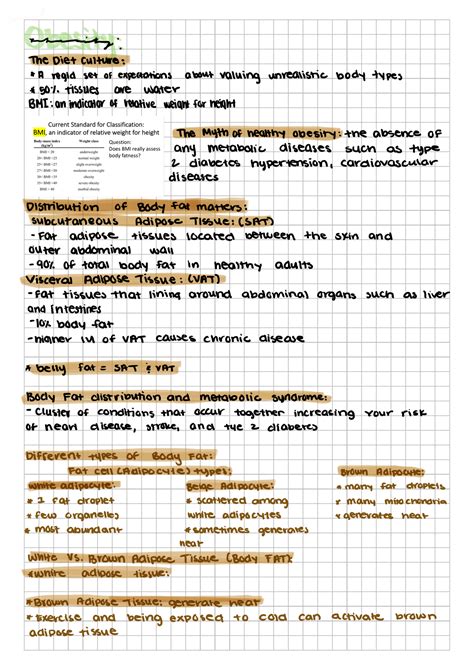 Obesity:
The Diet Culture:
* A rogid set of expectations about valuing unrealistic body types
* 50% tissues are water
BMI: an indicator of relative weight for height
Current Standard for Classification:
BMI, an indicator of relative weight for height
Body mass index (kg/m²) Weight status
underweight
normal weight
slight overweight
moderate overweight
obesity
severe obesity
morbid obesity
Question:
Does BMI really assess
body fatness?
The Myth of healthy obesity: the absence of
any metabolic diseases such as type
2 diabetes hypertension, cardiovascular
diseases
Distribution of Body fat matters:
subcutaneous Adipose Tissue: (SAT)
- Fat adipose tissues located between the skin and
outer abdominal wall
- 90% of total body fat in healthy adults
Visceral Adipose Tissue: (VAT)
- Fat tissues that lining around abdominal organs such as liver
and intestines
- 10% body fat
- higher of VAT causes chronic disease
* belly fat = SAT & VAT
Body Fat distribution and metabolic syndrome:
- Cluster of conditions that occur together increasing your risk
of heart disease, stroke, and tye 2 diabetes
Different types of Body Fat:
Fat cell (Adipocyte) types:
white adipocyte:
* 1 fat droplet
* few organelles
* most abundant
Beige Adipocyte:
* scattered among
white adipocytes
* sometimes generates
heat
Brown Adipocyte:
* many fat droplets
* many mitochondria
* generates heat
White Vs. Brown Adipose Tissue (Body FAT):
* white adipose tissue:
* Brown Adipose Tissue: generate heat
* Exercise and being exposed to cold can activate brown
adipose tissue